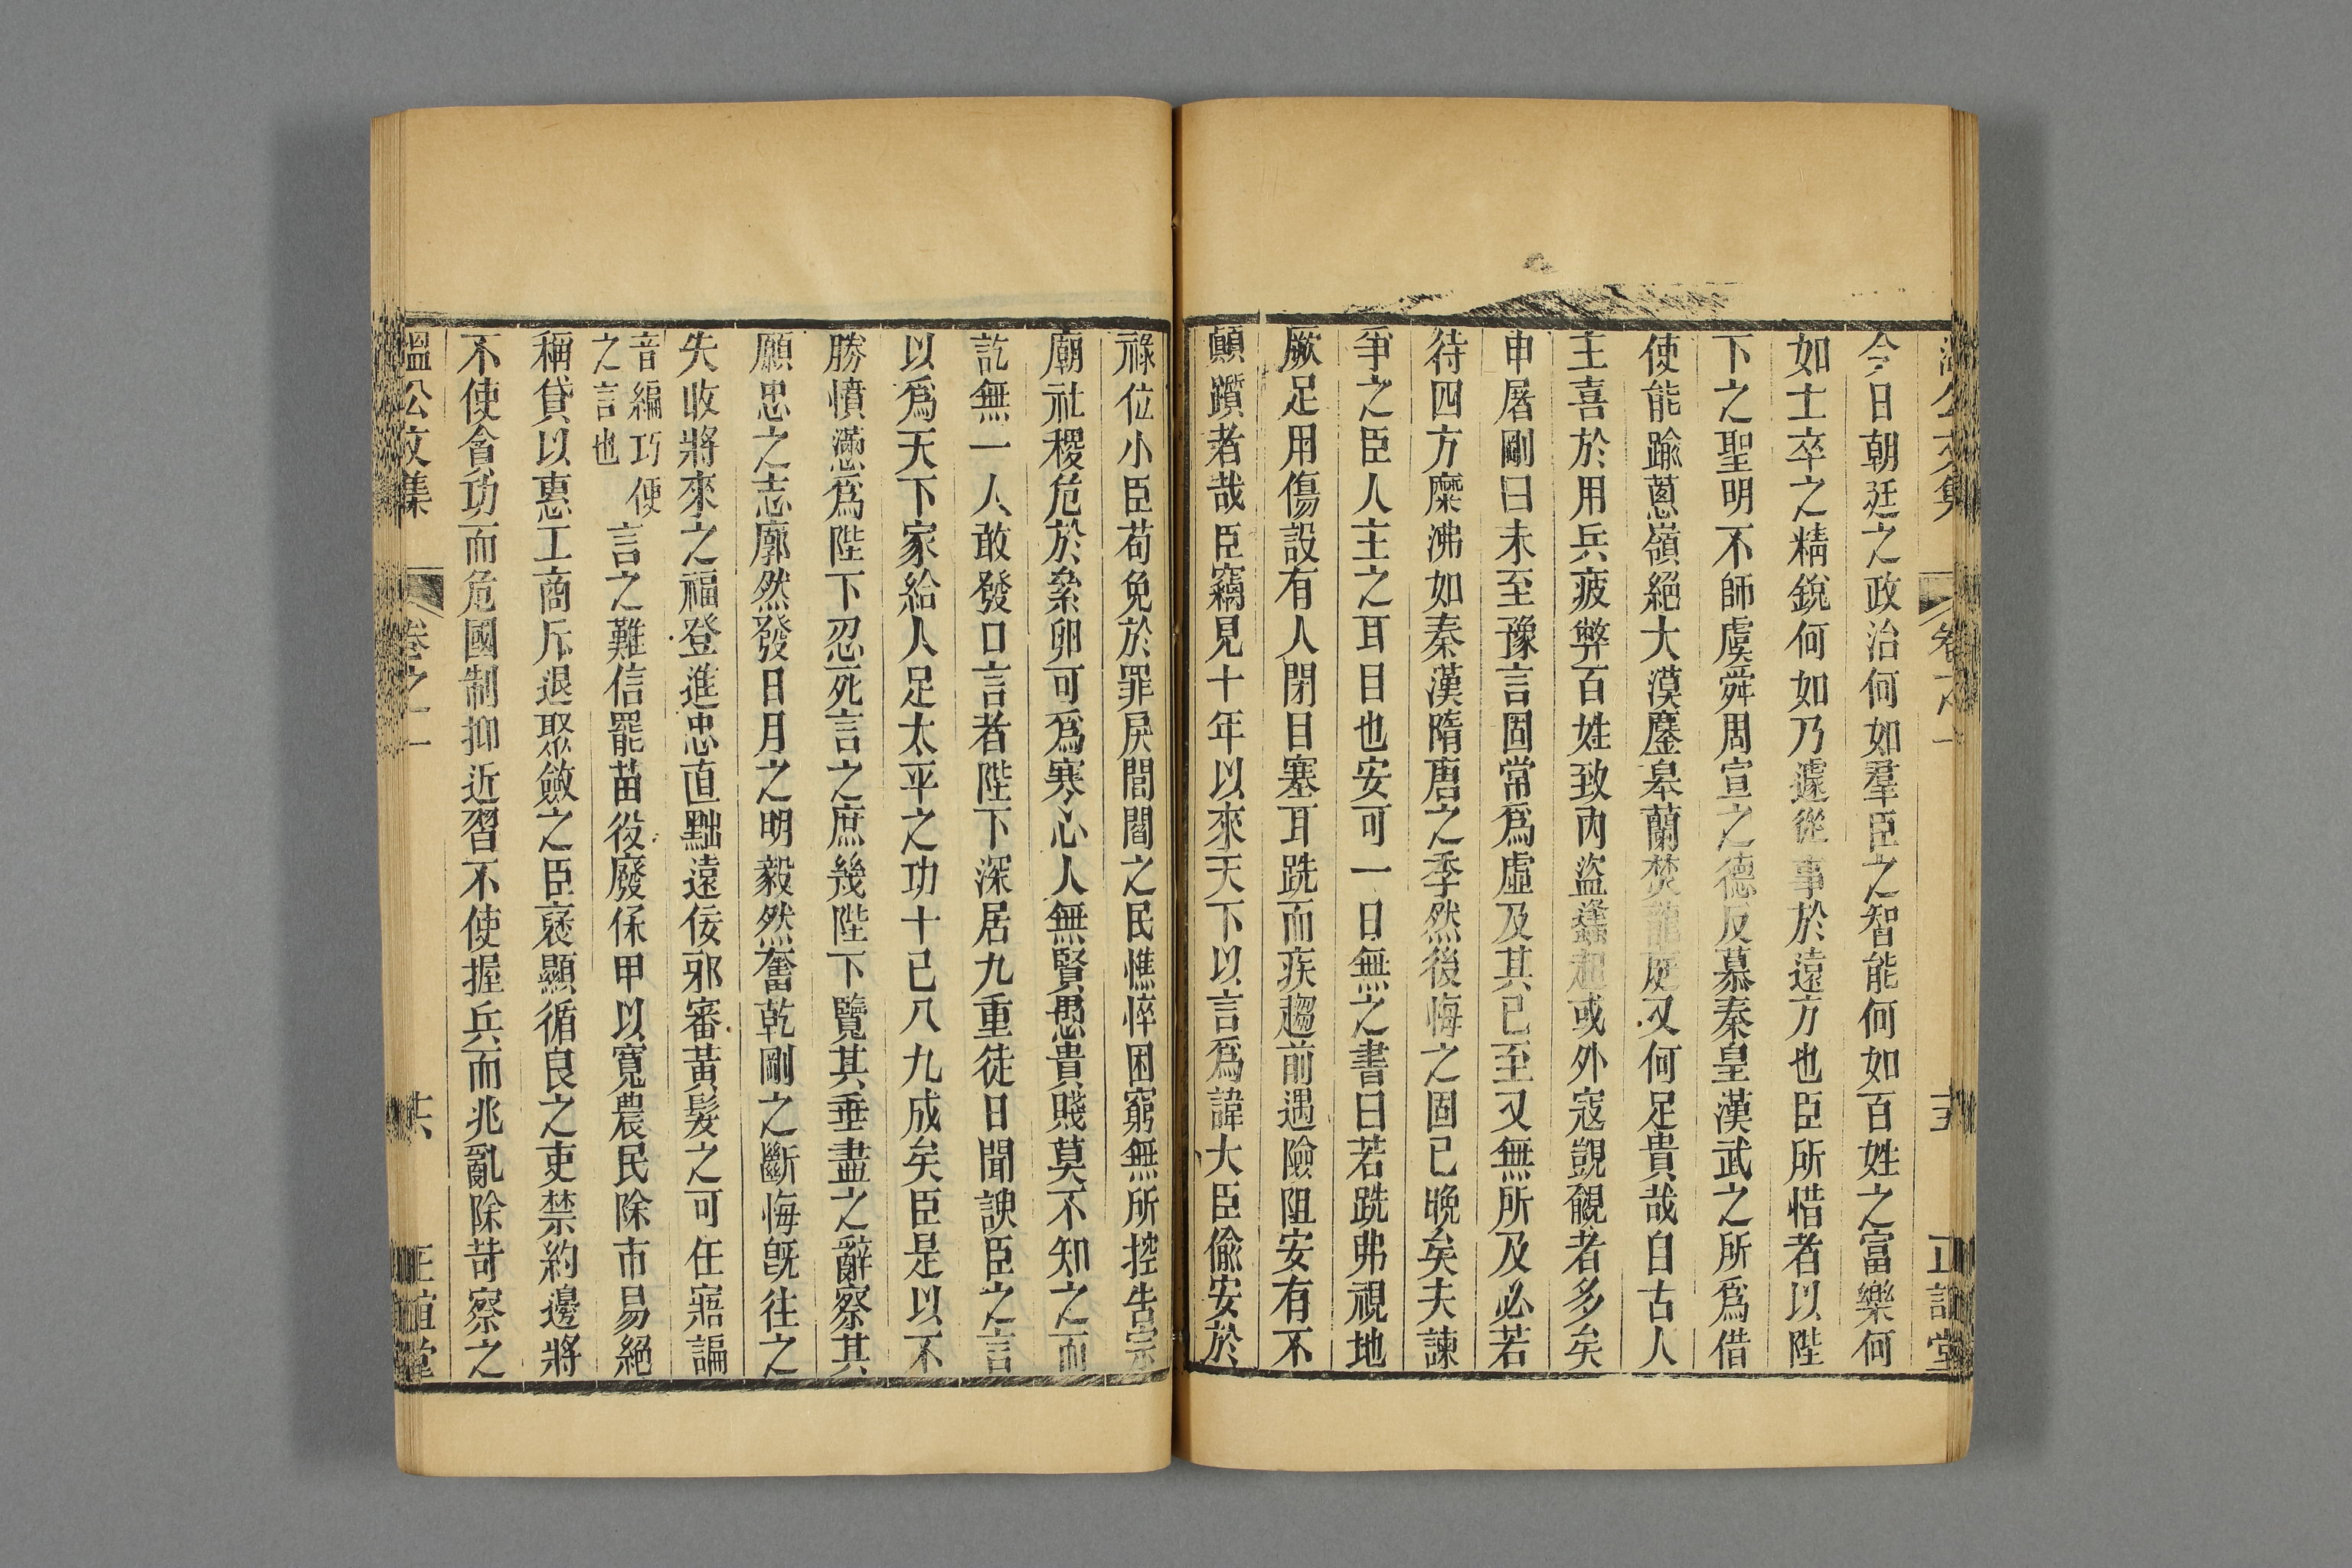 溫公文集 卷之一 十五 正誼堂
今日朝廷之政治何如羣臣之智能何如百姓之富樂何
如士卒之精銳何如乃遽從事於遠方也臣所惜者以陛
下之聖明不師虞舜周宣之德反慕秦皇漢武之所爲借
使能踰蔥嶺絕大漠鏖皋蘭焚龍庭又何足貴哉自古人
主喜於用兵疲弊百姓致內盜蠭起或外寇覬覦者多矣
申屠剛曰未至豫言固常爲虛及其已至又無所及必若
待四方糜沸如秦漢隋唐之季然後悔之固已晚矣夫諫
爭之臣人主之耳目也安可一日無之書曰若跣弗視地
厥足用傷設有人閉目塞耳跣而疾趨前遇險阻安有不
顛躓者哉臣竊見十年以來天下以言爲諱大臣偸安於
祿位小臣苟免於罪戾閭閻之民憔悴困窮無所控告宗
廟社稷危於絫卵可爲寒心人無賢愚貴賤莫不知之而
訖無一人敢發口言者陛下深居九重徒日聞諛臣之言
以爲天下家給人足太平之功十已八九成矣臣是以不
勝憤懣爲陛下忍死言之庶幾陛下覽其垂盡之辭察其
願忠之志廓然發日月之明毅然奮乾剛之斷悔旣往之
失收將來之福登進忠直黜遠佞邪審黃髮之可任寤諞
音編巧便
之言也
言之難信罷苗役廢保甲以寬農民除市易絕
稱貸以惠工商斥退聚斂之臣褒顯循良之吏禁約邊將
不使貪功而危國制抑近習不使握兵而兆亂除苛察之
溫公文集 卷之一 十六 正誼堂